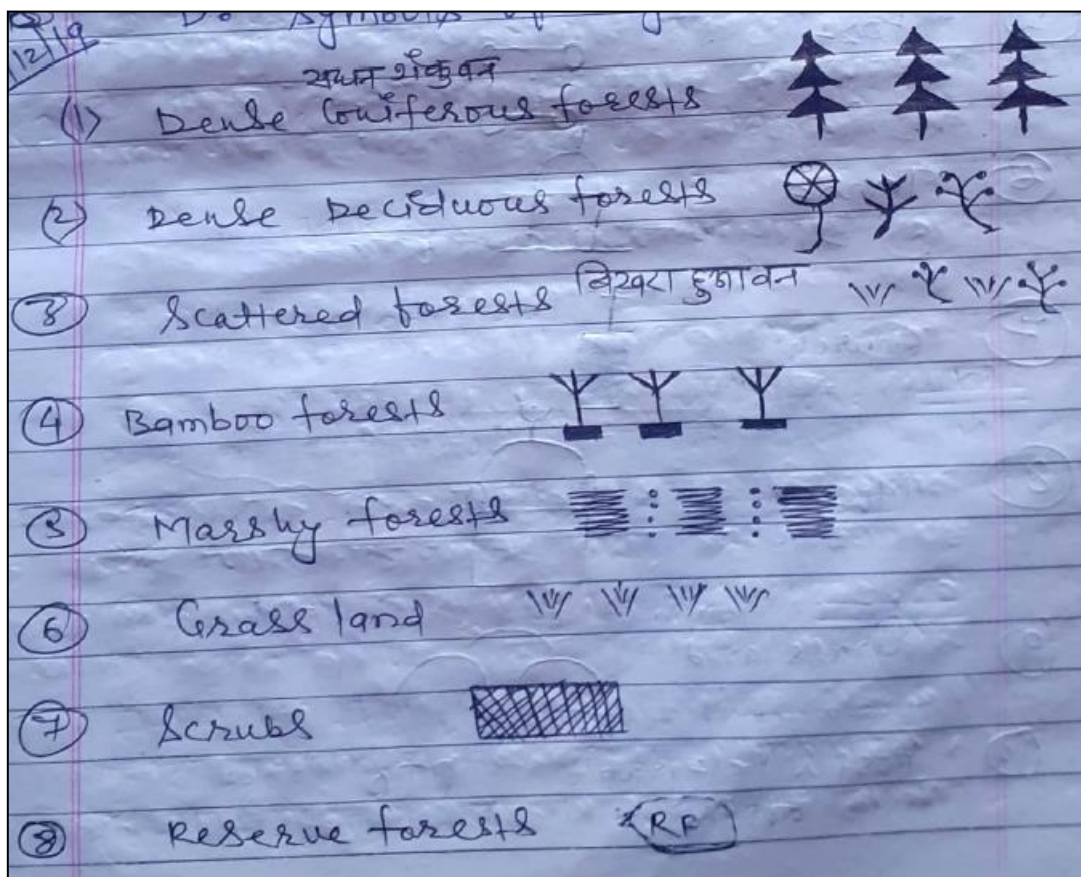 D. Symbols of
12/19
सघन शंकुवन
(1) Dense Coniferous forests
(2) Dense Deciduous forests
3 Scattered forests बिखरा हुआ वन
4 Bamboo forests
5 Marshy forests
6 Grass land
7 Scrubs
8 Reserve forests RF